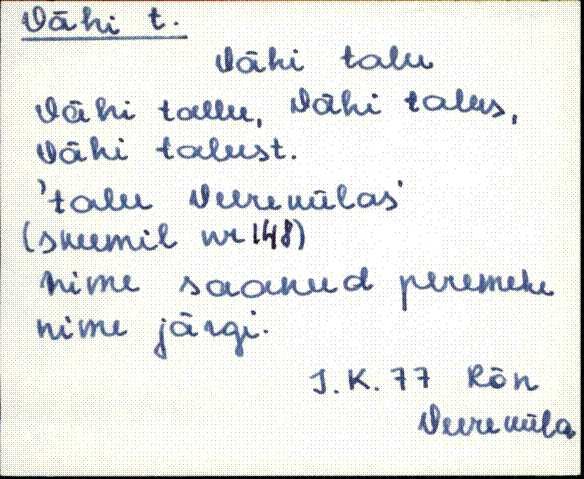 Vähi t.
Vähi talu
Vähi tallu, Vähi talus,
Vähi talust.
'talu Veerekülas'
(skeemil nr 148)
Nime saanud peremehe
nime järgi.
J.K. 77 Rõn
Veereküla